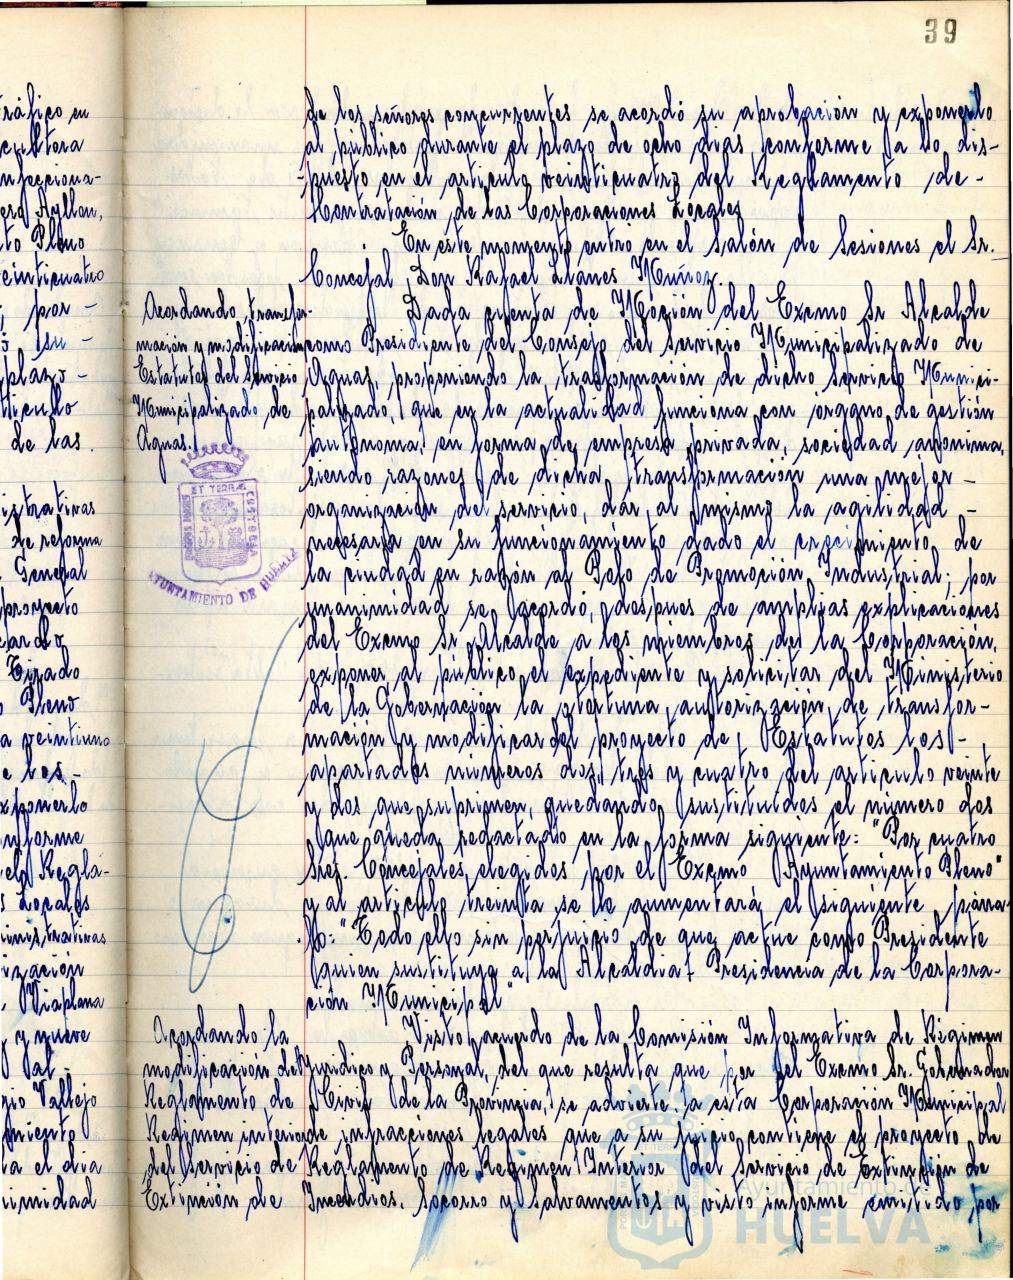 39
de los señores concurrentes se acordó su aprobación y exponerlo
al público durante el plazo de ocho dias conforme a lo dis-
puesto en el articulo veinticuatro del Reglamento de-
Contratación de las Corporaciones Locales
En este momento entró en el Salón de Sesiones el Sr.
Concejal Don Rafael Llanes Muñoz.
Acordando transfor-
mación y modificacion
Estatutos del Servicio
Municipalizado de
Aguas.
Dada cuenta de Moción del Excmo Sr Alcalde
como Presidente del Consejo del Servicio Municipalizado de
Aguas, proponiendo la trasformación de dicho Servicio Munici-
palizado, que en la actualidad funciona con órgano de gestión
autónoma, en forma de empresa privada, sociedad anonima,
siendo razones de dicha transformación una mejor-
organización del servicio, dar al mismo la agilidad-
necesaria en su funcionamiento dado el crecimiento de
la ciudad en razón al Polo de Promoción Industrial; por
unanimidad se acordó, despues de amplias explicaciones
del Excmo Sr. Alcalde a los miembros de la Corporación,
exponer al público el expediente y solicitar del Ministerio
de la Gobernación la oportuna autorización de transfor-
mación y modificar del proyecto de Estatutos los-
apartados números dos, tres y cuatro del articulo veinte
y dos que suprimen, quedando sustituidos el número dos
que queda redactado en la forma siguiente: "Por cuatro
Sres. Concejales elegidos por el Excmo Ayuntamiento Pleno"
y al articulo treinta se le aumentará el siguiente párra-
fo: "Todo ello sin perjuicio de que actue como Presidente
quien sustituya a la Alcaldia-Presidencia de la Corpora-
ción Municipal"
Acordando la
modificación del
Reglamento de
Regimen interior
del Servicio de
Extinción de
Visto acuerdo de la Comisión Informativa de Régimen
Juridico y Personal, del que resulta que por el Excmo Sr. Gobernador
Civil de la Provincia, se advierte a esta Corporación Municipal
de infracciones legales que a su juicio contiene el proyecto de
Reglamento de Regimen Interior del Servicio de Extinción de
Incendios, Socorro y Salvamentos y visto informe emitido por
AYUNTAMIENTO DE HUELVA
Ayuntamiento de
HUELVA